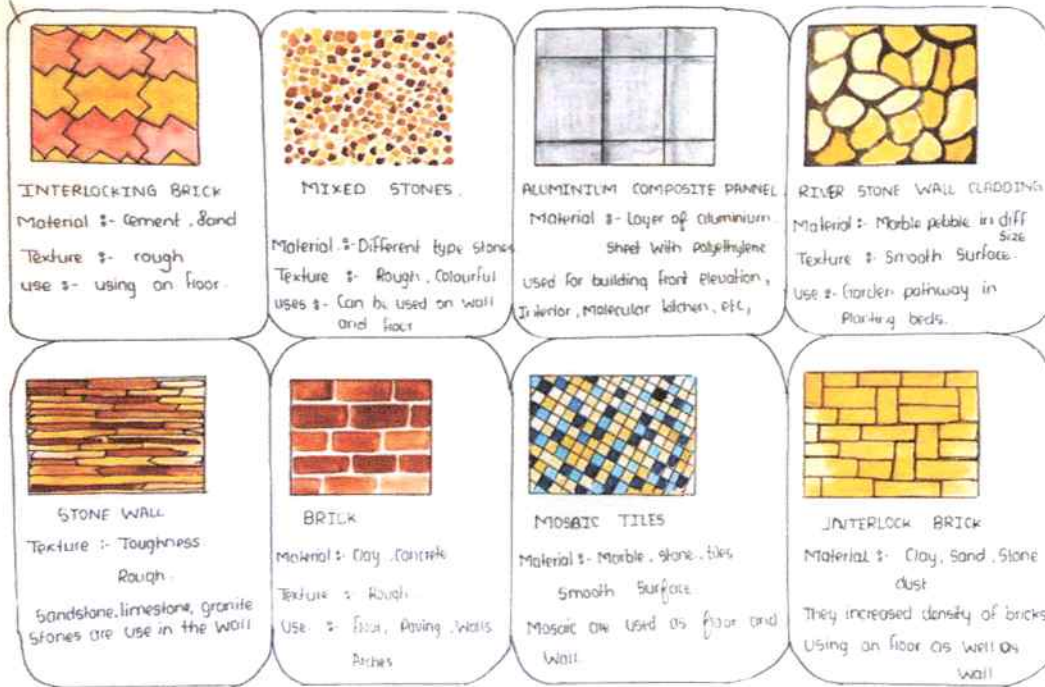 INTERLOCKING BRICK
Material :- Cement, Sand
Texture :- rough
use :- using on floor.
MIXED STONES.
Material :- Different type stones
Texture :- Rough, Colourful
uses :- Can be used on wall
and floor
ALUMINIUM COMPOSITE PANNEL
Material :- Layer of aluminium
Sheet with Polyethylene
used for building front elevation,
Interior, Molecular kitchen, etc,
RIVER STONE WALL CLADDING
Material :- Marble pebble in diff
Size
Texture :- Smooth Surface.
Use :- Garden pathway in
Planting beds.
STONE WALL
Texture :- Toughness
Rough.
Sandstone, limestone, granite
Stones are use in the wall
BRICK
Material :- Clay, Concrete
Texture :- Rough
Use :- floor, Paving, Walls
Arches
MOSAIC TILES
Material :- Marble, stone, tiles
Smooth Surface
Mosaic are used as floor and
Wall.
INTERLOCK BRICK
Material :- Clay, Sand, Stone
dust
They increased density of bricks
Using on floor as well as
Wall